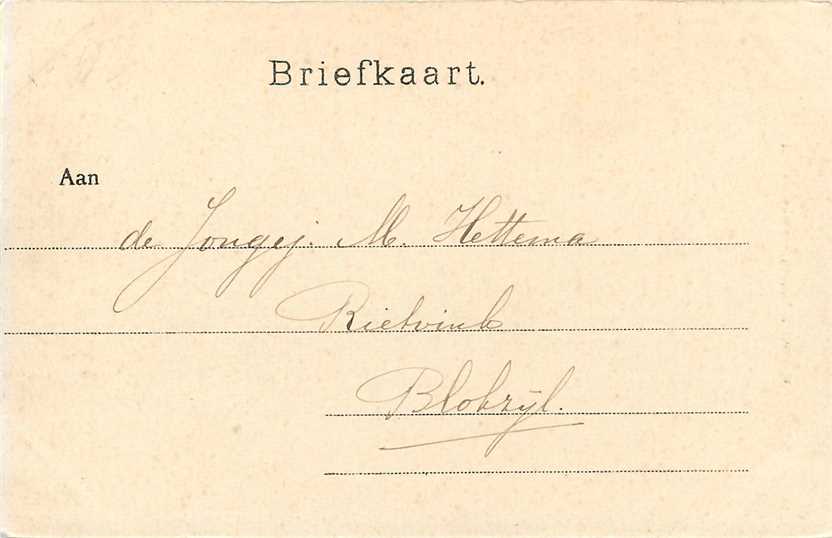 Briefkaart.
Aan
de Jongej. M. Hettema
Rietvink
Blokzijl.